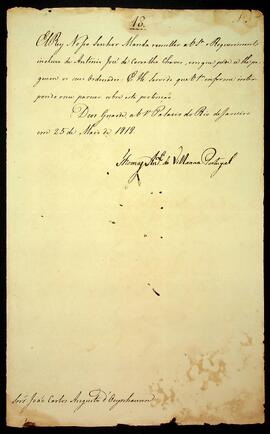 18.
ElRey Nosso Senhor Manda remetter a V. S.ª o Requerimento
incluso de Antonio José de Carvalho Chaves, em que pede se lhe pa-
guem os seus ordenados: E He Servido que V. S.ª informe inter-
pondo o seu parecer sobre esta pertenção.
Deos Guarde a V. S.ª Palacio do Rio de Janeiro
em 25 de Maio de 1818.
Thomaz Ant.º de Villanova Portugal
Snr. João Carlos Augusto d'Oeynhausen